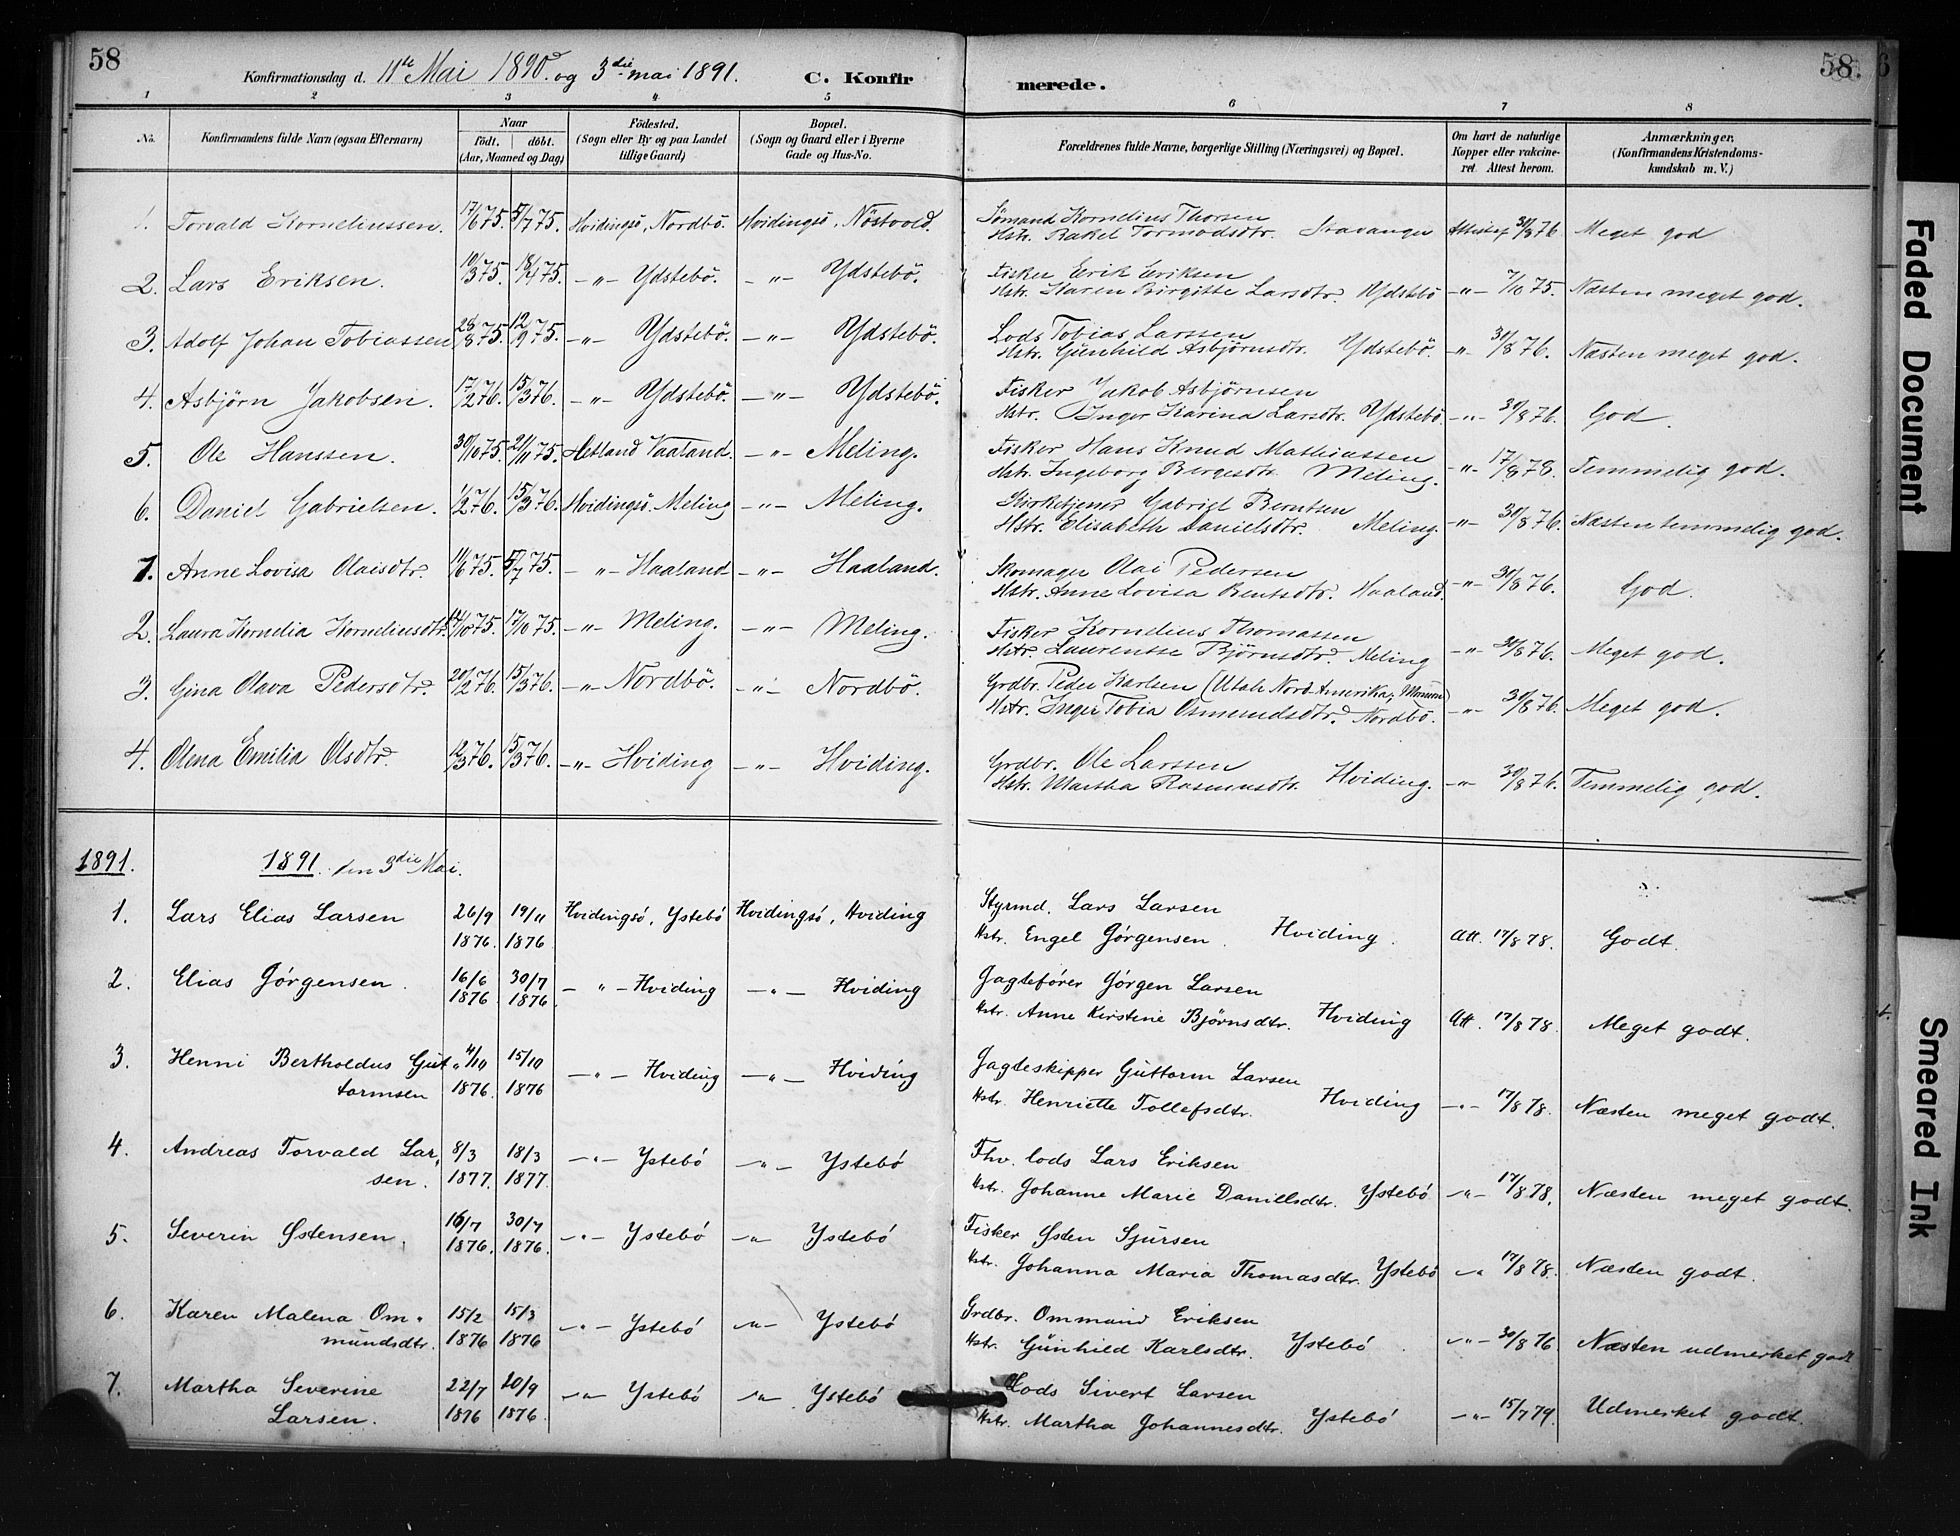 58
58.
Konfirmationsdag d. 11te Mai 1890 og 3die mai 1891. C. Konfir merede.
1 2 3 4 5 6 7 8
No. Konfirmandens fulde Navn (ogsaa Efternavn) Naar födt. döbt. (Aar, Maaned og Dag) Födested. (Sogn eller By og paa Landet tillige Gaard) Bopæl. (Sogn og Gaard eller i Byerne Gade og Hus-No. Forældrenes fulde Navne, borgerlige Stilling (Næringsvei) og Bopæl. Om havt de naturlige Kopper eller vakcineret. Attest herom. Anmærkninger. (Konfirmandens Kristendomskundskab m. V.)
1. Torvald Korneliussen. 17/6 75. 5/7 75. Hvidingsö, Nordbö. Hvidingsö, Nöstvold. Sömand Kornelius Thorsen
Hstr. Rakel Tormodsdtr. Stavanger Attest af 30/8 76. Meget god
2. Lars Eriksen. 10/3 75. 18/4 75. -"- Ydstebö. -"- Ydstebö. Fisker Erik Eriksen
Hstr. Karen Birgitte Larsdtr. Ydstebö -"- 7/10 75. Næsten meget god.
3. Adolf Johan Tobiassen 28/8 75. 12/9 75. -"- Ydstebö. -"- Ydstebö. Lods Tobias Larssen
Hstr. Gunhild Asbjörnsdtr. Ydstebö. " 30/8 76. Næsten meget god.
4. Asbjörn Jakobsen. 17/2 76. 15/3 76. -"- Ydstebö. -"- Ydstebö. Fisker Jakob Asbjörnsen
Hstr. Inger Karina Larsdtr. Ydstebö. -"- 30/8 76. God.
5. Ole Hanssen. 30/10 75. 21/11 75. Hetland Vaaland. -"- Meling. Fisker Hans Knud Mathiassen
Hstr. Ingeborg Borgesdtr. Meling. -"- 17/8 78. Temmelig god.
6. Daniel Gabrielsen. 1/2 76. 15/3 76. Hvidingsö. Meling -"- Meling. Kirketjener Gabriel Berntsen
Hstr. Elisabeth Danielsdtr. Meling. -"- 30/8 76. Næsten temmelig god.
1. Anne Lovisa Olaisdtr. 11/6 75. 5/7 75. -"- Haaland -"- Haaland. Skomager Olai Pedersen
Hstr. Anne Lovisa Bentsdtr. Haaland. -"- 30/8 76. God.
2. Laura Kornelia Korneliusdtr. /10 75. 17/10 75. -"- Meling. -"- Meling. Fisker Kornelius Thomassen
Hstr. Laurentse Björnsdtr. Meling -"- 30/8 76. Meget god.
3. Gina Olava Pedersdtr. 20/2 76. 15/3 76. -"- Nordbö. -"- Nordbö. Grdbr. Peder Karlsen (Utah Nord-Amerika,
Hstr. Inger Tobia Osmundsdtr. Nordbö. -"- 30/8 76. Meget god.
4. Olena Emilia Olsdtr. 12/3 76. 15/3 76. -"- Hviding -"- Hviding. Grdbr. Ole Larssen
Hstr. Martha Rasmusdtr. Hviding. -"- 30/8 76. Temmelig god.
1891. 1891. den 3die Mai.
1. Lars Elias Larsen 26/9 1876. 19/11 1876 Hvidingsö, Ystebö Hvidingsö, Hviding Styrmd. Lars Larsen
Hstr. Engel Jörgensen. Hviding. Att. 17/8 78. Godt.
2. Elias Jörgensen. 16/6 1876 30/7 1876. -"- Hviding -"- Hviding Jagtefører Jörgen Larsen
Hstr. Anne Kirstine Bjørnsdtr. Hviding Att. 17/8 78. Meget godt.
3. Henni Bertholdus Gut 4/10 1876. 15/10 1876 -"- Hviding -"- Hviding Jagteskipper Guttorm Larsen
tormsen Hstr. Henriette Tollefsdtr. Hviding -"- 17/8 78. Næsten meget godt.
4. Andreas Torvald Lar, 8/3 1877. 18/3 1877. -"- Ystebö -"- Ystebö Fhv. lods Lars Eriksen
sen. Hstr. Johanne Marie Danielsdtr. Ystebö -"- 17/8 78. Næsten meget godt.
5. Severin Østensen. 16/7 1876. 30/7 1876. -"- Ystebö -"- Ystebö Fisker Østen Sjursen
Hstr. Johanna Maria Thomasdtr. Ystebö -"- 17/8 78. Næsten godt.
6. Karen Malena Om- 15/2 1876 15/3 1876 -"- Ystebö -"- Ystebö Grdbr. Ommund Eriksen
mundsdtr. Hstr. Gunhild Karlsdtr. Ystebö. -"- 30/8 76 Næsten udmerket godt
7. Martha Severine 22/7 1876 20/9 1876. -"- Ystebö -"- Ystebö Lods Sivert Larsen
Larsen. Hstr. Martha Johannesdtr. Ystebö -"- 15/7 79. Udmerket godt.
Faded Document
Smeared Ink